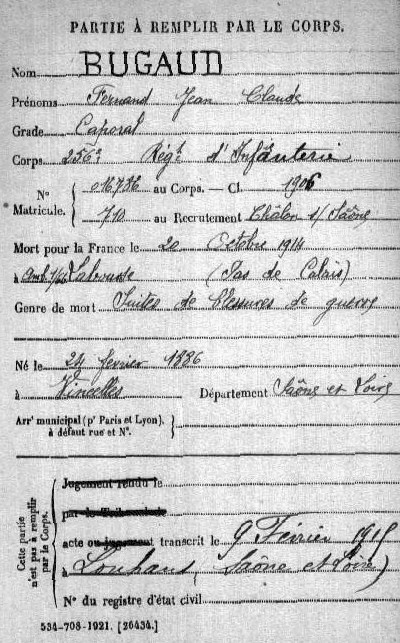 PARTIE À REMPLIR PAR LE CORPS.
Nom BUGAUD
Prénoms Fernand Jean Claude
Grade Caporal
Corps 256e Régt d'Infanterie
N° Matricule. 016736 au Corps. — Cl. 1906
710 au Recrutement Châlon s/ Saône
Mort pour la France le 20 Octobre 1914
à Labourse (Pas de Calais)
Genre de mort Suites de blessures de guerre
Né le 24 février 1886
à Vincelles Département Saône et Loire
Arrt municipal (pr Paris et Lyon), à défaut rue et N°.
Cette partie n'est pas à remplir par le Corps.
Jugement rendu le
par le Tribunal de
acte ou jugement transcrit le 9 Février 1915
à Louhans, (Saône et Loire)
N° du registre d'état civil
534-708-1921. [26434.]